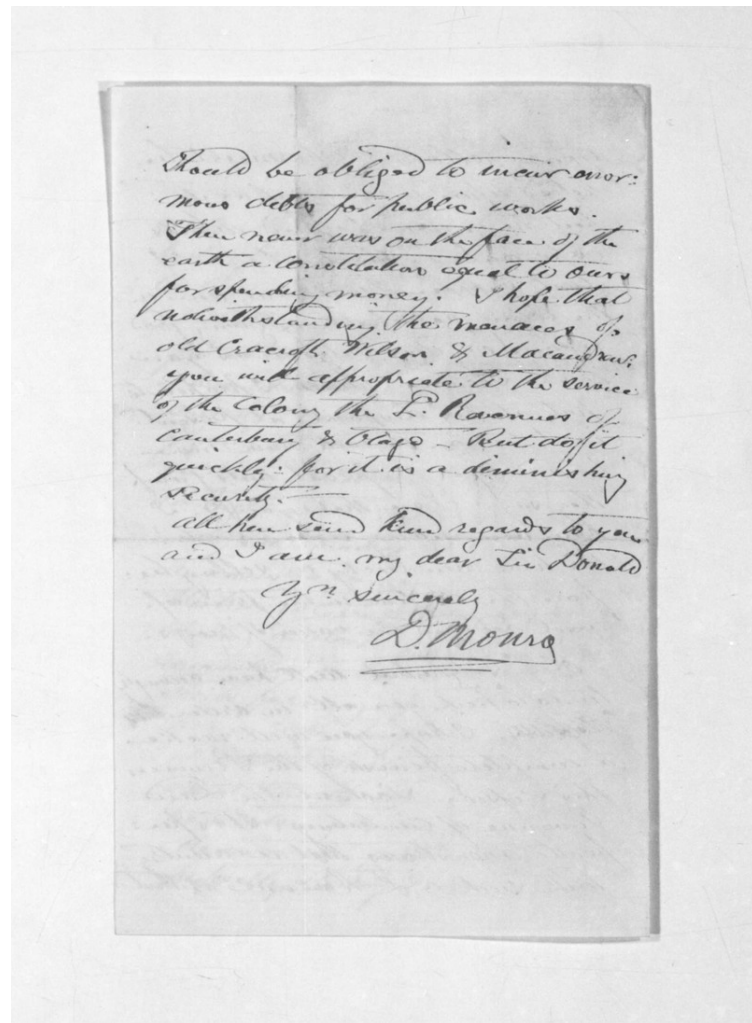 should be obliged to incur enor-
mous debts for public works.
There never was on the face of the
earth a constitution equal to ours
for spending money. I hope that
notwithstanding the menaces of
old Cracroft Wilson & Macandrew
you will appropriate to the service
of the Colony the L. Revenues of
Canterbury & Otago – But do it
quickly: for it is a diminishing
security. —
All here send kind regards to you
and I am my dear Sir Donald
Yrs sincerely
D. Monro